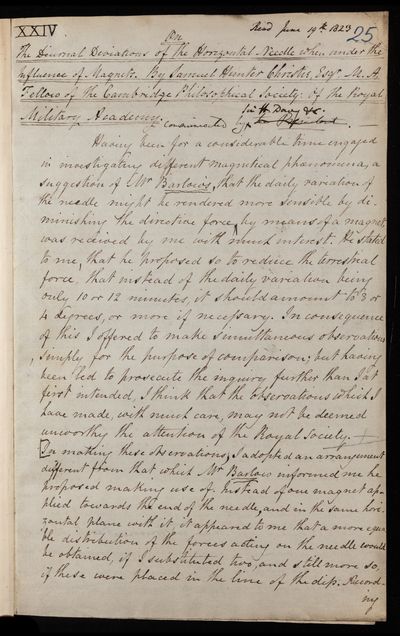 XXIV.
Read June 19th 1823
25
On
The Diurnal Deviations of the Horizontal Needle when under the
influence of Magnets. By Samuel Hunter Christie, Esqr. M. A.
Fellow of the Cambridge Philosophical Society: Of the Royal
Military Academy.
communicated by the President
Sir H. Davy &c.
Having been for a considerable time engaged
in investigating different magnetical phænomena, a
suggestion of Mr Barlow's, that the daily variation of
the needle might be rendered more sensible by di
minishing the directive force, by means of a magnet,
was received by me with much interest. He stated
to me, that he proposed so to reduce the terrestrial
force, that instead of the daily variation being
only 10 or 12 minutes, it should amount to 3 or
4 degrees, or more if necessary. In consequence
of this I offered to make simultaneous observations
simply for the purpose of comparison; but having
been led to prosecute the inquiry further than I at
first intended, I think that the observations which I
have made, with much care, may not be deemed
unworthy the attention of the Royal Society.
In making these observations, I adopted an arrangement
different from that which Mr Barlow informed me he
proposed making use of. Instead of one magnet ap-
plied towards the end of the needle, and in the same hori-
zontal plane with it, it appeared to me that a more equa
ble distribution of the forces acting on the needle would
be obtained, if I substituted two, and still more so,
if these were placed in the line of the dip. Accord-
ing